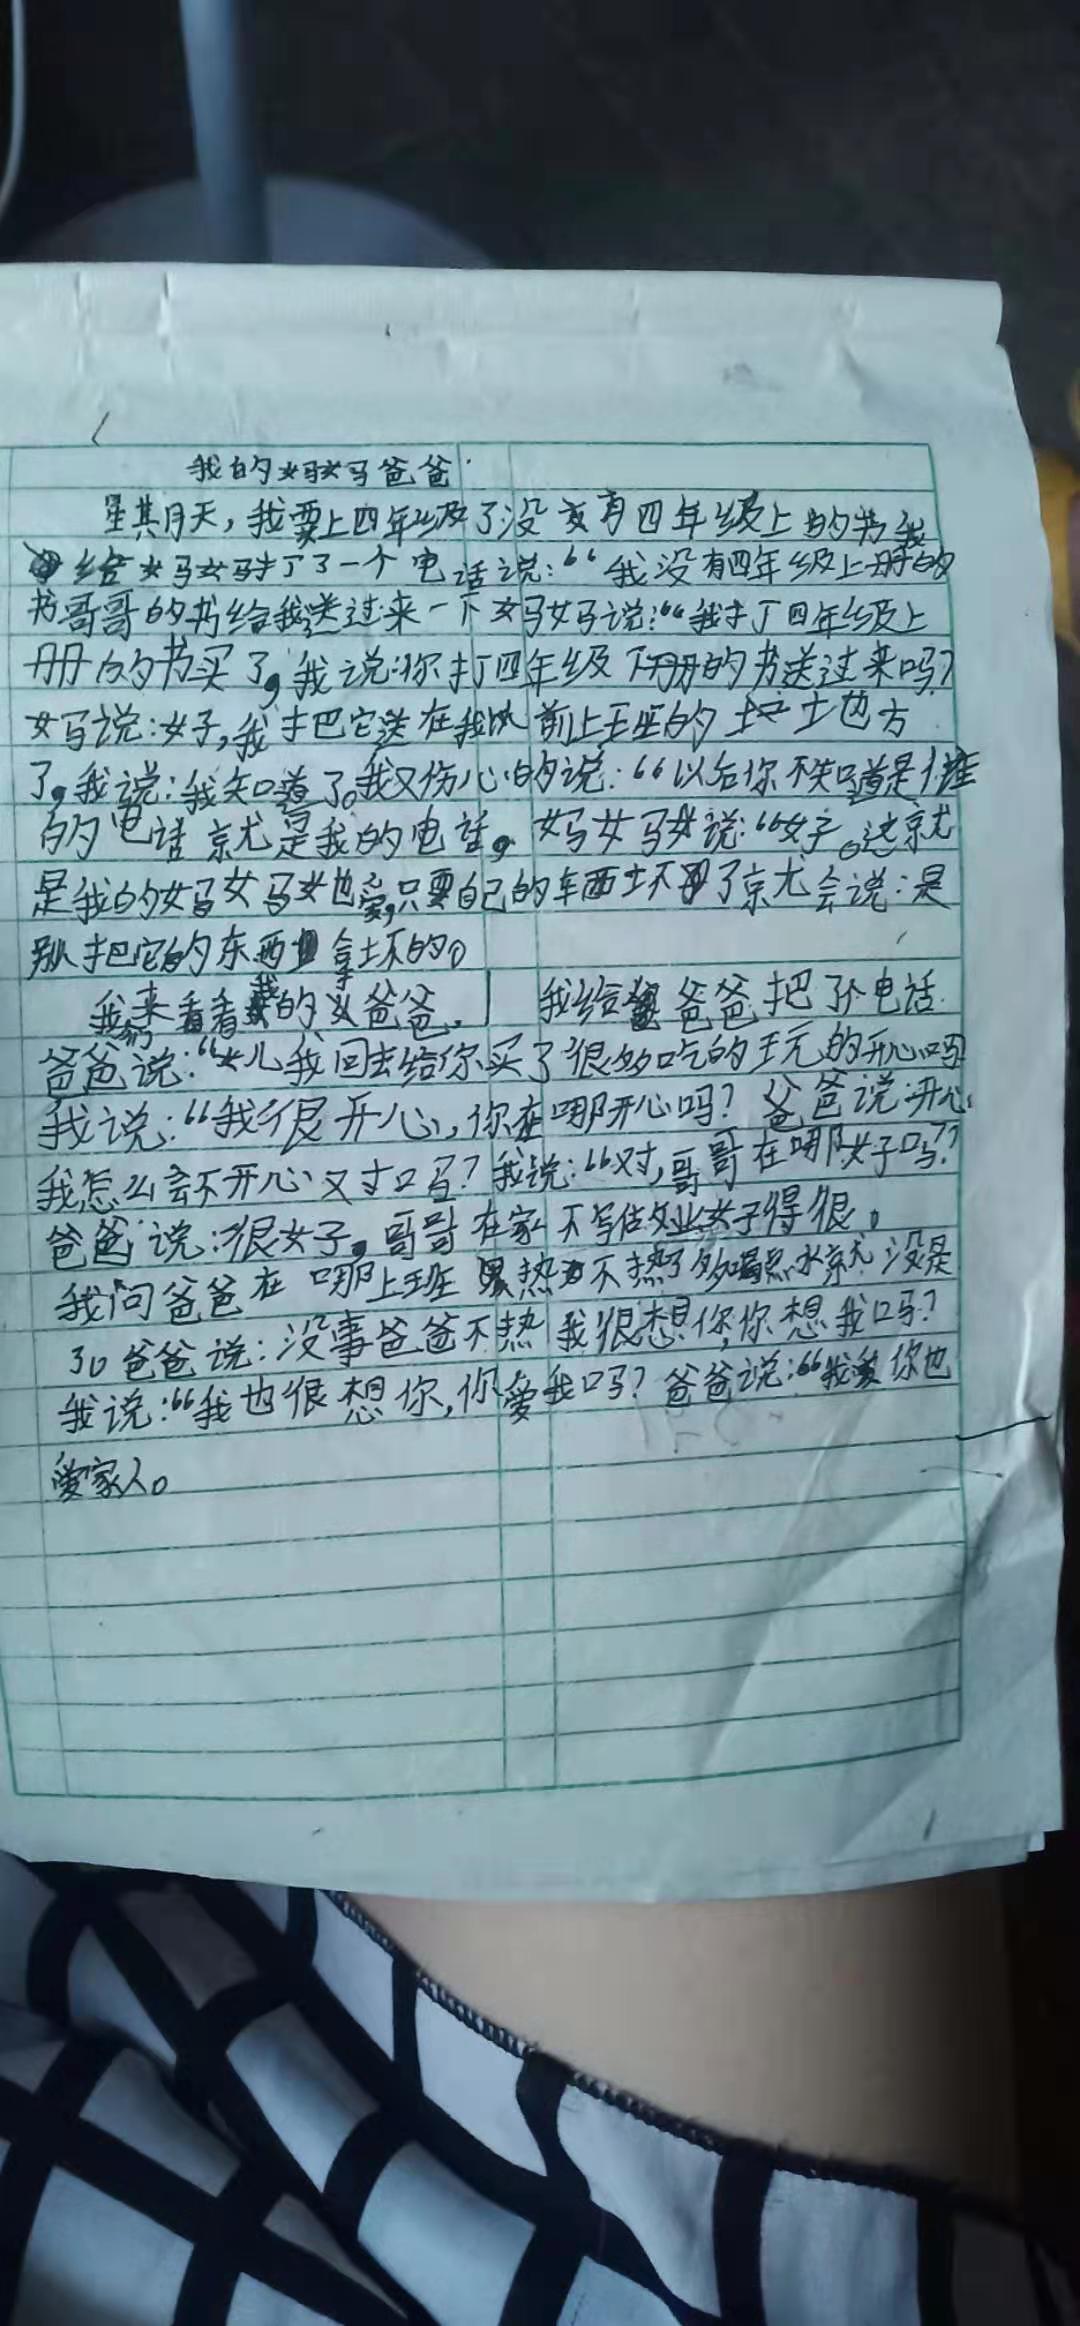 我的妈妈爸爸
星期天，我要上四年级了没有四年级上的书我
给妈妈打了一个电话说：“我没有四年级上册的
书哥哥的书给我送过来一下妈妈说：“我打四年级上
册的书买了，我说：你打四年级下册的书送过来吗？
妈说：好，我把它送在我以前上班的地方
了，我说：我知道了。我又伤心的说：“以后你不知道是谁
的电话就是我的电话，妈妈说：“好。这就
是我的妈妈也爱，只要自己的东西坏了就会说：是
别人把它的东西拿坏的。
我们来看看我的爸爸，我给爸爸把了个电话
爸爸说：“女儿我回去给你买了很多吃的玩的开心吗
我说：“我很开心，你在哪开心吗？爸爸说：开心
我怎么会不开心对吗？我说：“对，哥哥在哪好吗？
爸爸说：很好，哥哥在家不写作业好得很。
我问爸爸在哪上班累热不热了多喝点水就没是
了。爸爸说：没事爸爸不热我很想你，你想我吗？
我说：“我也很想你，你爱我吗？爸爸说：“我爱你也
爱家人。